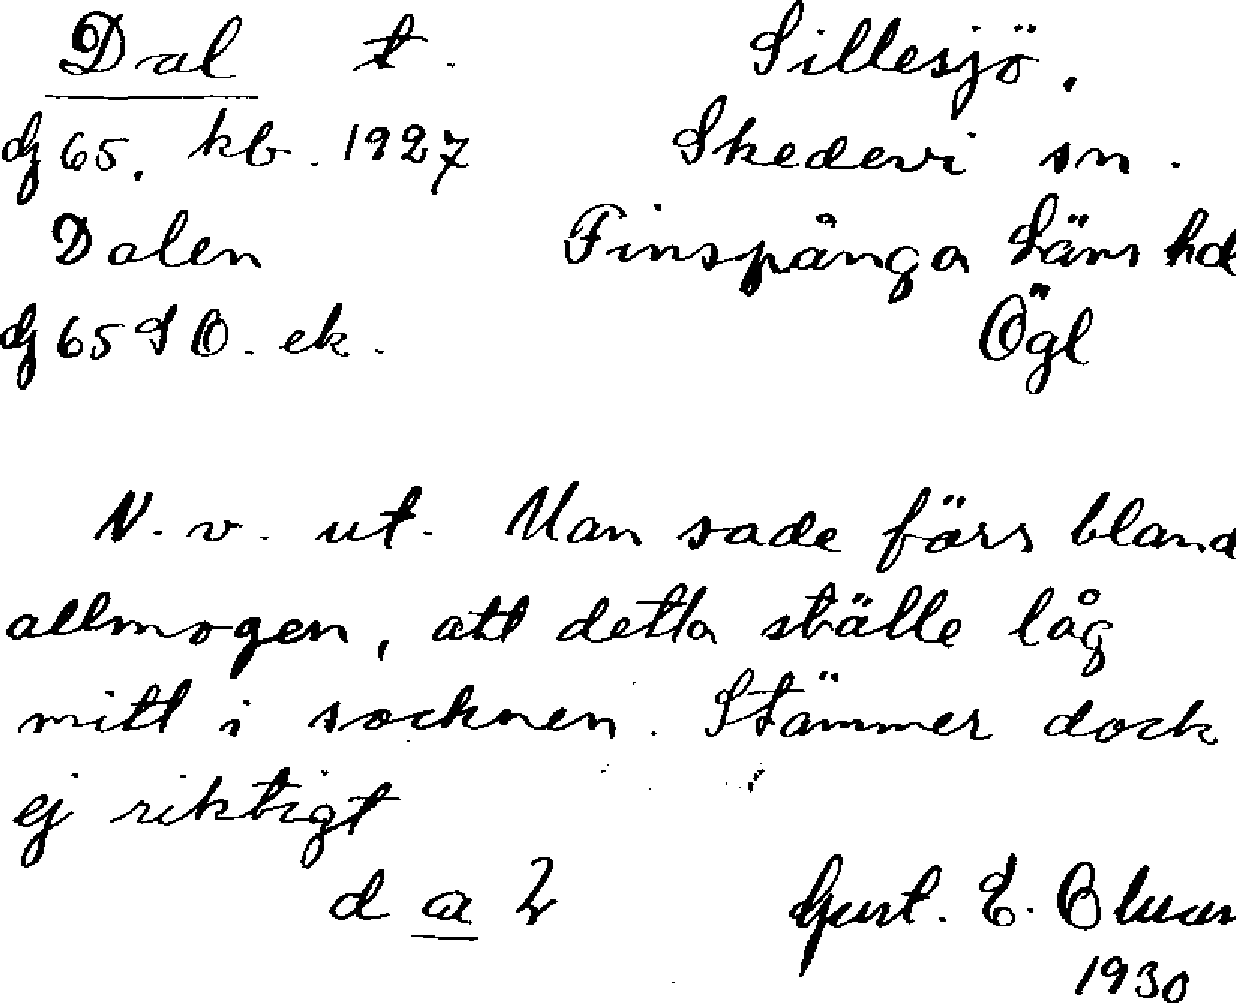 Dal t. Sillesjö.
dz 65. kb. 1927 Skedevi sn.
Dalen Finspånga Läns hd
dz 65 SO. ek. Ögl
N. v. ut. Man sade förr bland
allmogen, att detta ställe låg
mitt i socknen. Stämmer dock
ej riktigt
d a l Gust. E.
1930